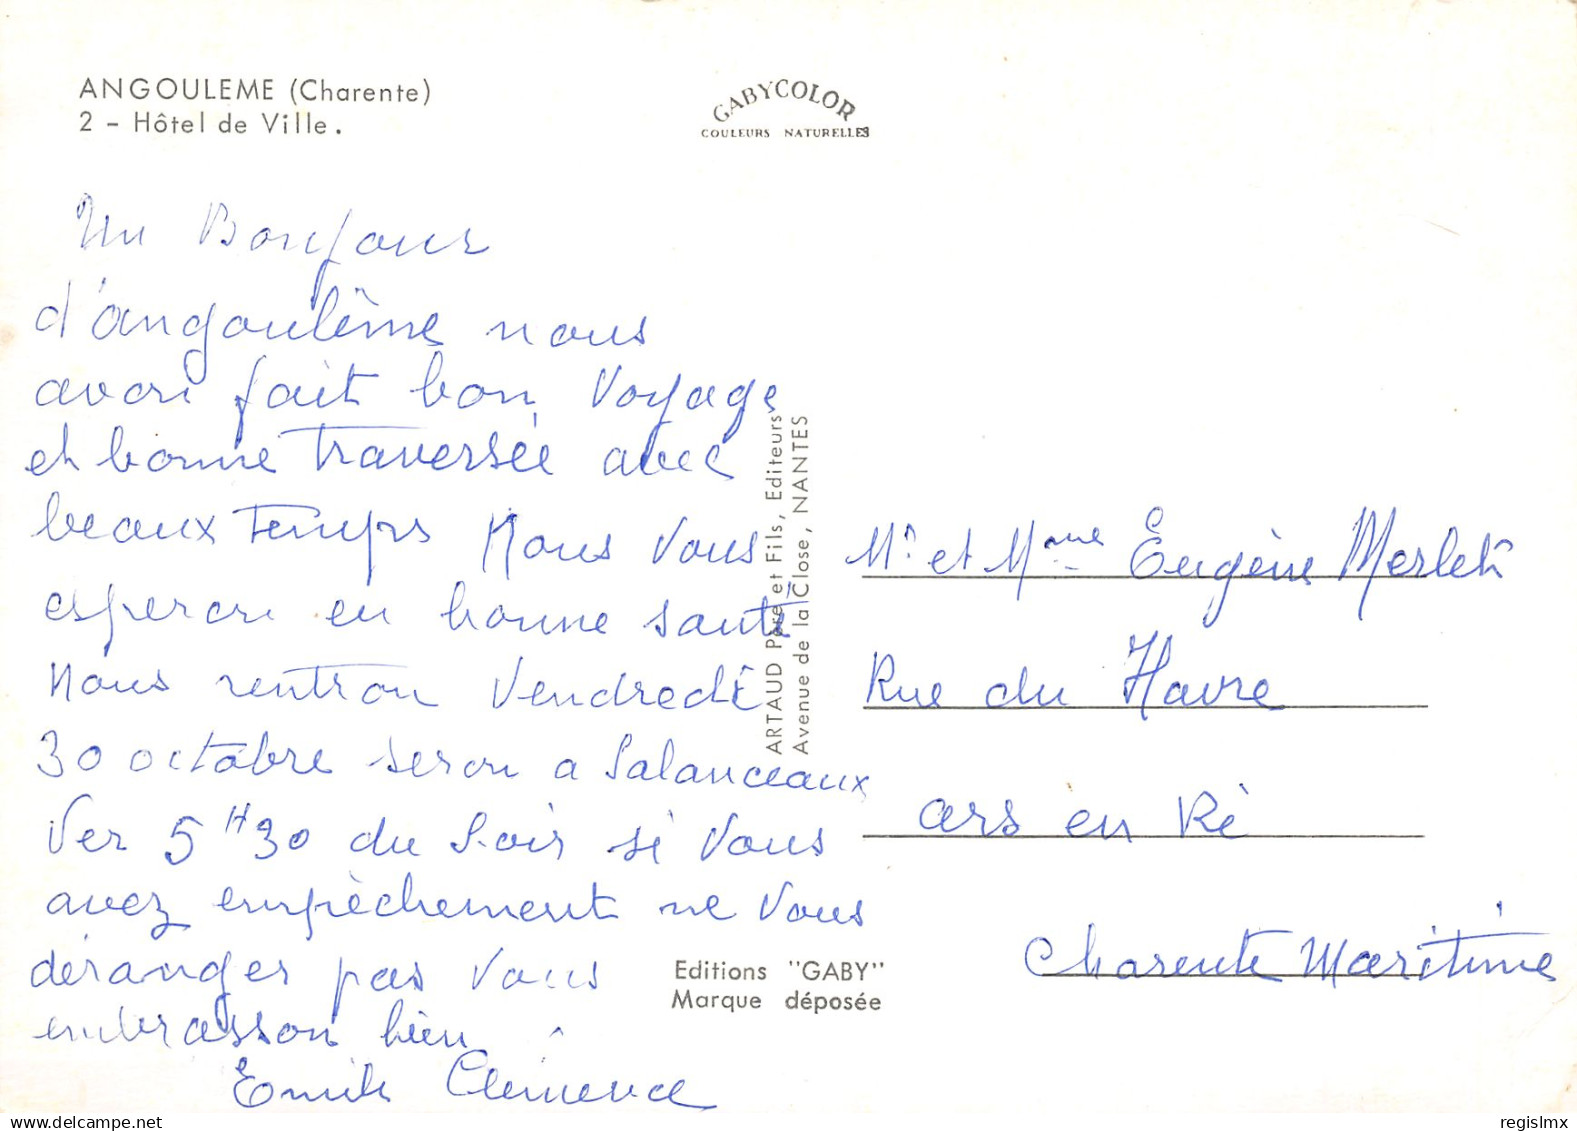 ANGOULEME (Charente)
2 - Hôtel de Ville.
GABYCOLOR
COULEURS NATURELLES
Un Bonjour
d'angoulême nous
avon fait bon voyage
et bonne traversée avec
beaux temps Nous vous
esperon en bonne santé
Nous rentron vendredi
30 octobre seron a Salanceaux
Ver 5 H 30 du soir si vous
avez empèchement ne vous
déranger pas vous
embrasson bien
Emile Clémence
ARTAUD Père et Fils, Editeurs
Avenue de la Close, NANTES
Editions "GABY"
Marque déposée
Mr et Mme Eugène Merlet
Rue du Havre
ars en Ré
Charente Maritime
regislmx